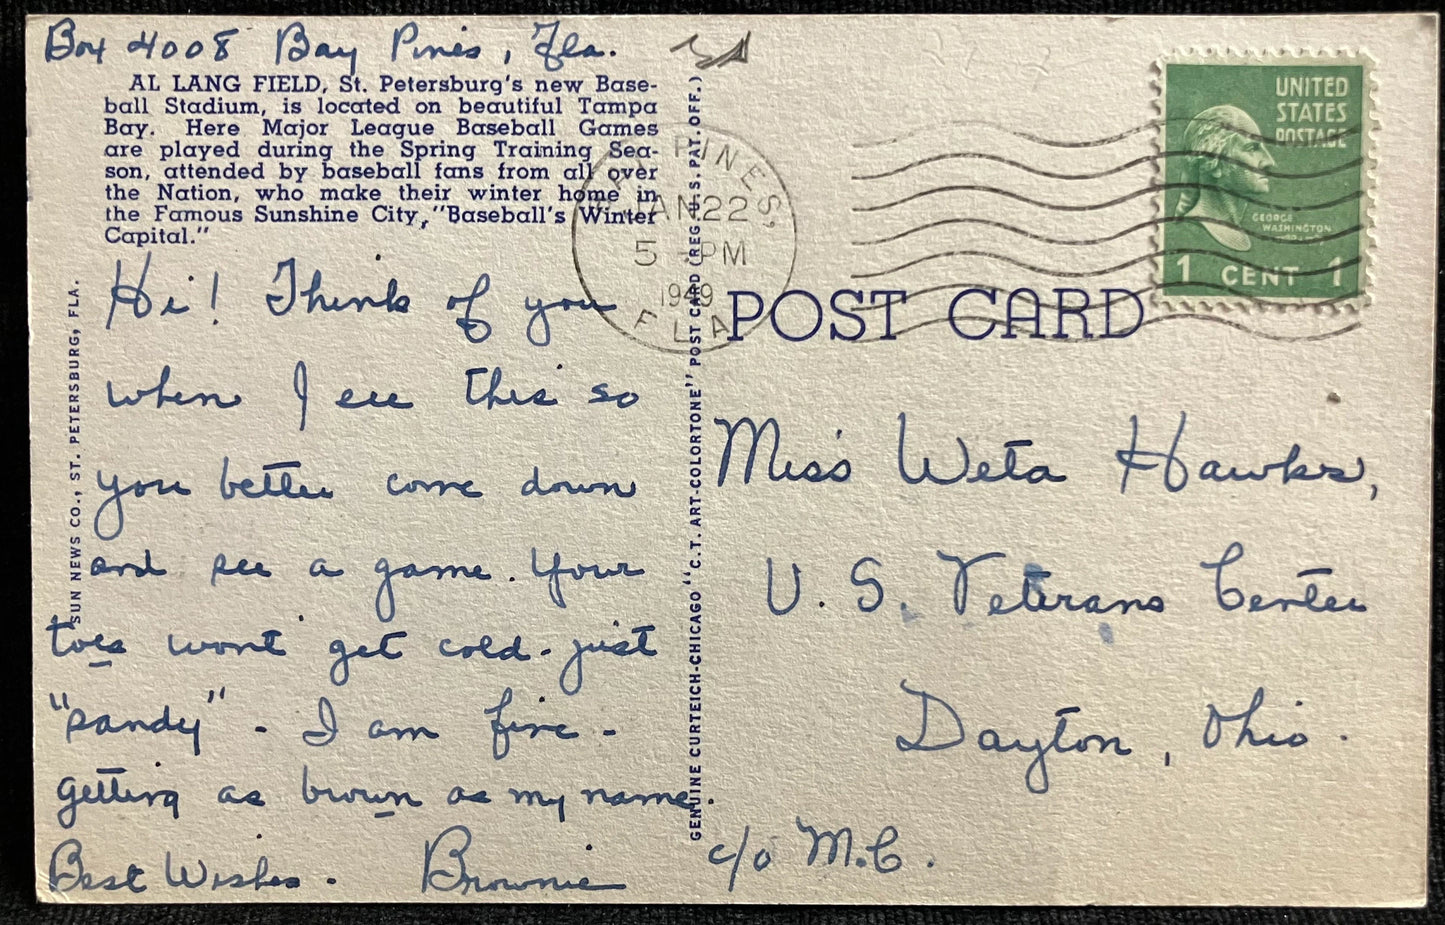 Box 4008 Bay Pines, Fla.
AL LANG FIELD, St. Petersburg's new Base-
ball Stadium, is located on beautiful Tampa
Bay. Here Major League Baseball Games
are played during the Spring Training Sea-
son, attended by baseball fans from all over
the Nation, who make their winter home in
the Famous Sunshine City, "Baseball's Winter
Capital."
Hi! Think of you
when I see this so
you better come down
and see a game. Your
toes wont get cold - just
"sandy" - I am fine -
getting as brown as my name.
Best Wishes - Brownie
SUN NEWS CO., ST. PETERSBURG, FLA.
GENUINE CURTEICH-CHICAGO "C.T. ART-COLORTONE" POST CARD (REG. U.S. PAT. OFF.)
PINES,
JAN 22
5 - PM
1949
FLA
UNITED
STATES
POSTAGE
GEORGE
WASHINGTON
1 CENT 1
POST CARD
Miss Weta Hawks,
U. S. Veterans Center
Dayton, Ohio.
c/o M.C.